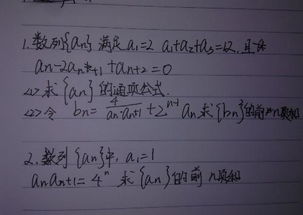 1.数列{an}满足a₁=2 a₁+a₂+a₃=12,且
an-2an+1+an+2=0
(1)求{an}的通项公式.
(2)令 bn=4/an·an+1+2ⁿ⁻¹ an 求{bn}的前n项和
2.数列{an}中, a₁=1
an an+1=4ⁿ 求{an}的前n项和